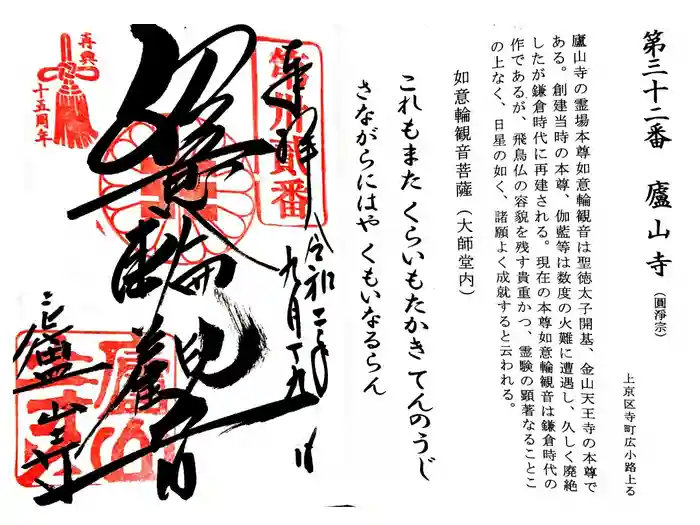 第三十二番 廬山寺（圓浄宗）
上京区寺町広小路上る
廬山寺の霊場本尊如意輪観音は聖徳太子開基、金山天王寺の本尊で
ある。創建当時の本尊、伽藍等は数度の火難に遭遇し、久しく廃絶
したが鎌倉時代に再建される。現在の本尊如意輪観音は鎌倉時代の
作であるが、飛鳥仏の容貌を残す貴重かつ、霊験の顕著なることこ
の上なく、日星の如く、諸願よく成就すると云われる。
如意輪観音菩薩（大師堂内）
これもまた くらいもたかき てんのうじ
さながらにはや くもいなるらん
奉拝 令和二年九月十九日
第卅貳番
如意輪観音
廬山寺
再興
十五周年